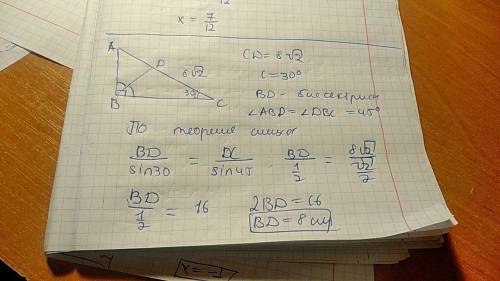 12
x = 7/12
A
D
8√2
30°
B
C
CD = 8√2
C = 30°
BD - биссектриса
∠ABD = ∠DBC = 45°
По теореме синусов
BD/sin30 = DC/sin45 BD/(1/2) = 8√2/(√2/2)
BD/(1/2) = 16 2BD = 16
BD = 8 см